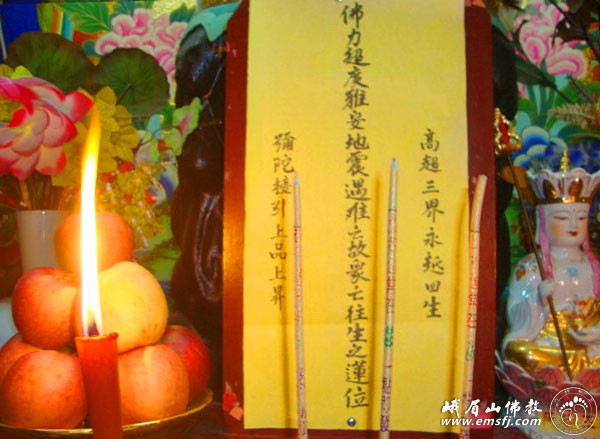 高超三界永超四生
佛力超度雅安地震遇难亡故眾亡往生之蓮位
彌陀接引上品上昇
峨眉山佛教
www.emsfj.com